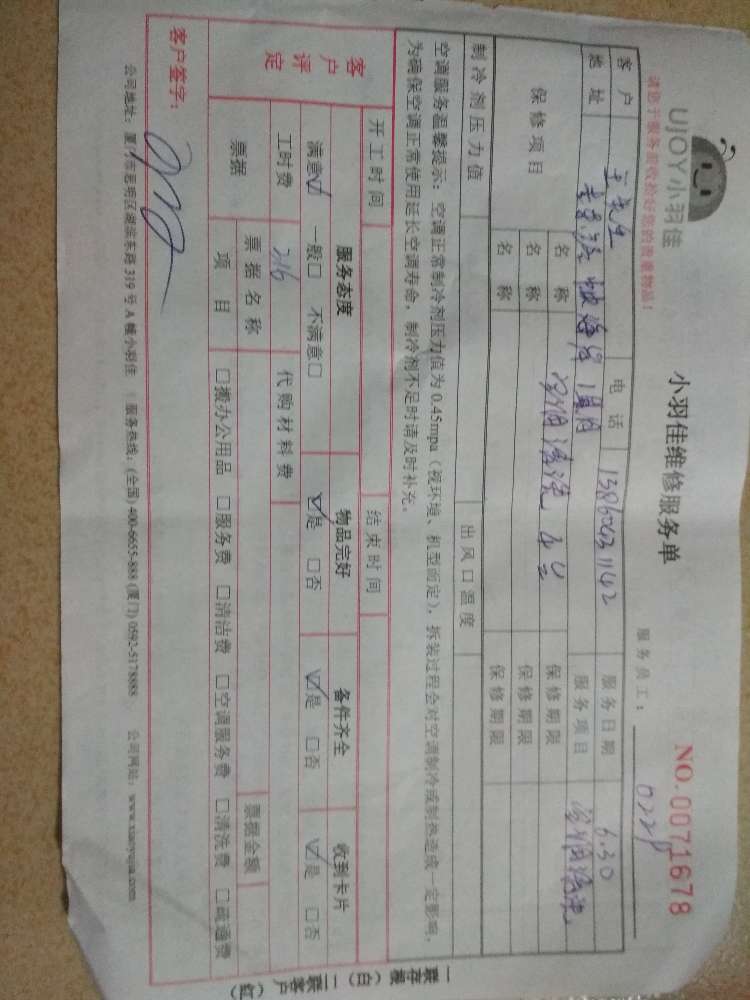 UJOY小羽佳
小羽佳维修服务单
NO.00071678
请您于服务前收拾好您的贵重物品！
服务员工：
客户 王先生 电话 13860431142 服务日期 6.30
地址 服务项目 空调清洗
保修项目 名称 空调清洗 保修期限
名称 保修期限
名称 保修期限
制冷剂压力值 出风口温度
空调服务温馨提示：空调正常制冷剂压力值为0.45mpa（视环境、机型而定），拆装过程会对空调制冷或制热造成一定影响，
为确保空调正常使用延长空调寿命，制冷剂不足时请及时补充。
开工时间 结束时间
客户评定 服务态度 物品完好 备件齐全 收到卡片
满意☑ 一般□ 不满意□ ☑是 □否 ☑是 □否 ☑是 □否
工时费 216 代购材料费
票据 票据名称 票据金额
项目 □搬办公用品 □服务费 □清洁费 □空调服务费 □清洗费 □疏通费
客户签字：
公司地址：厦门市思明区湖滨东路319号A幢小羽佳 服务热线：(全国) 400-6655-888 (厦门) 0592-5178888 公司网站：www.xiaoyujia.com
一联存根（白）二联客户（红）